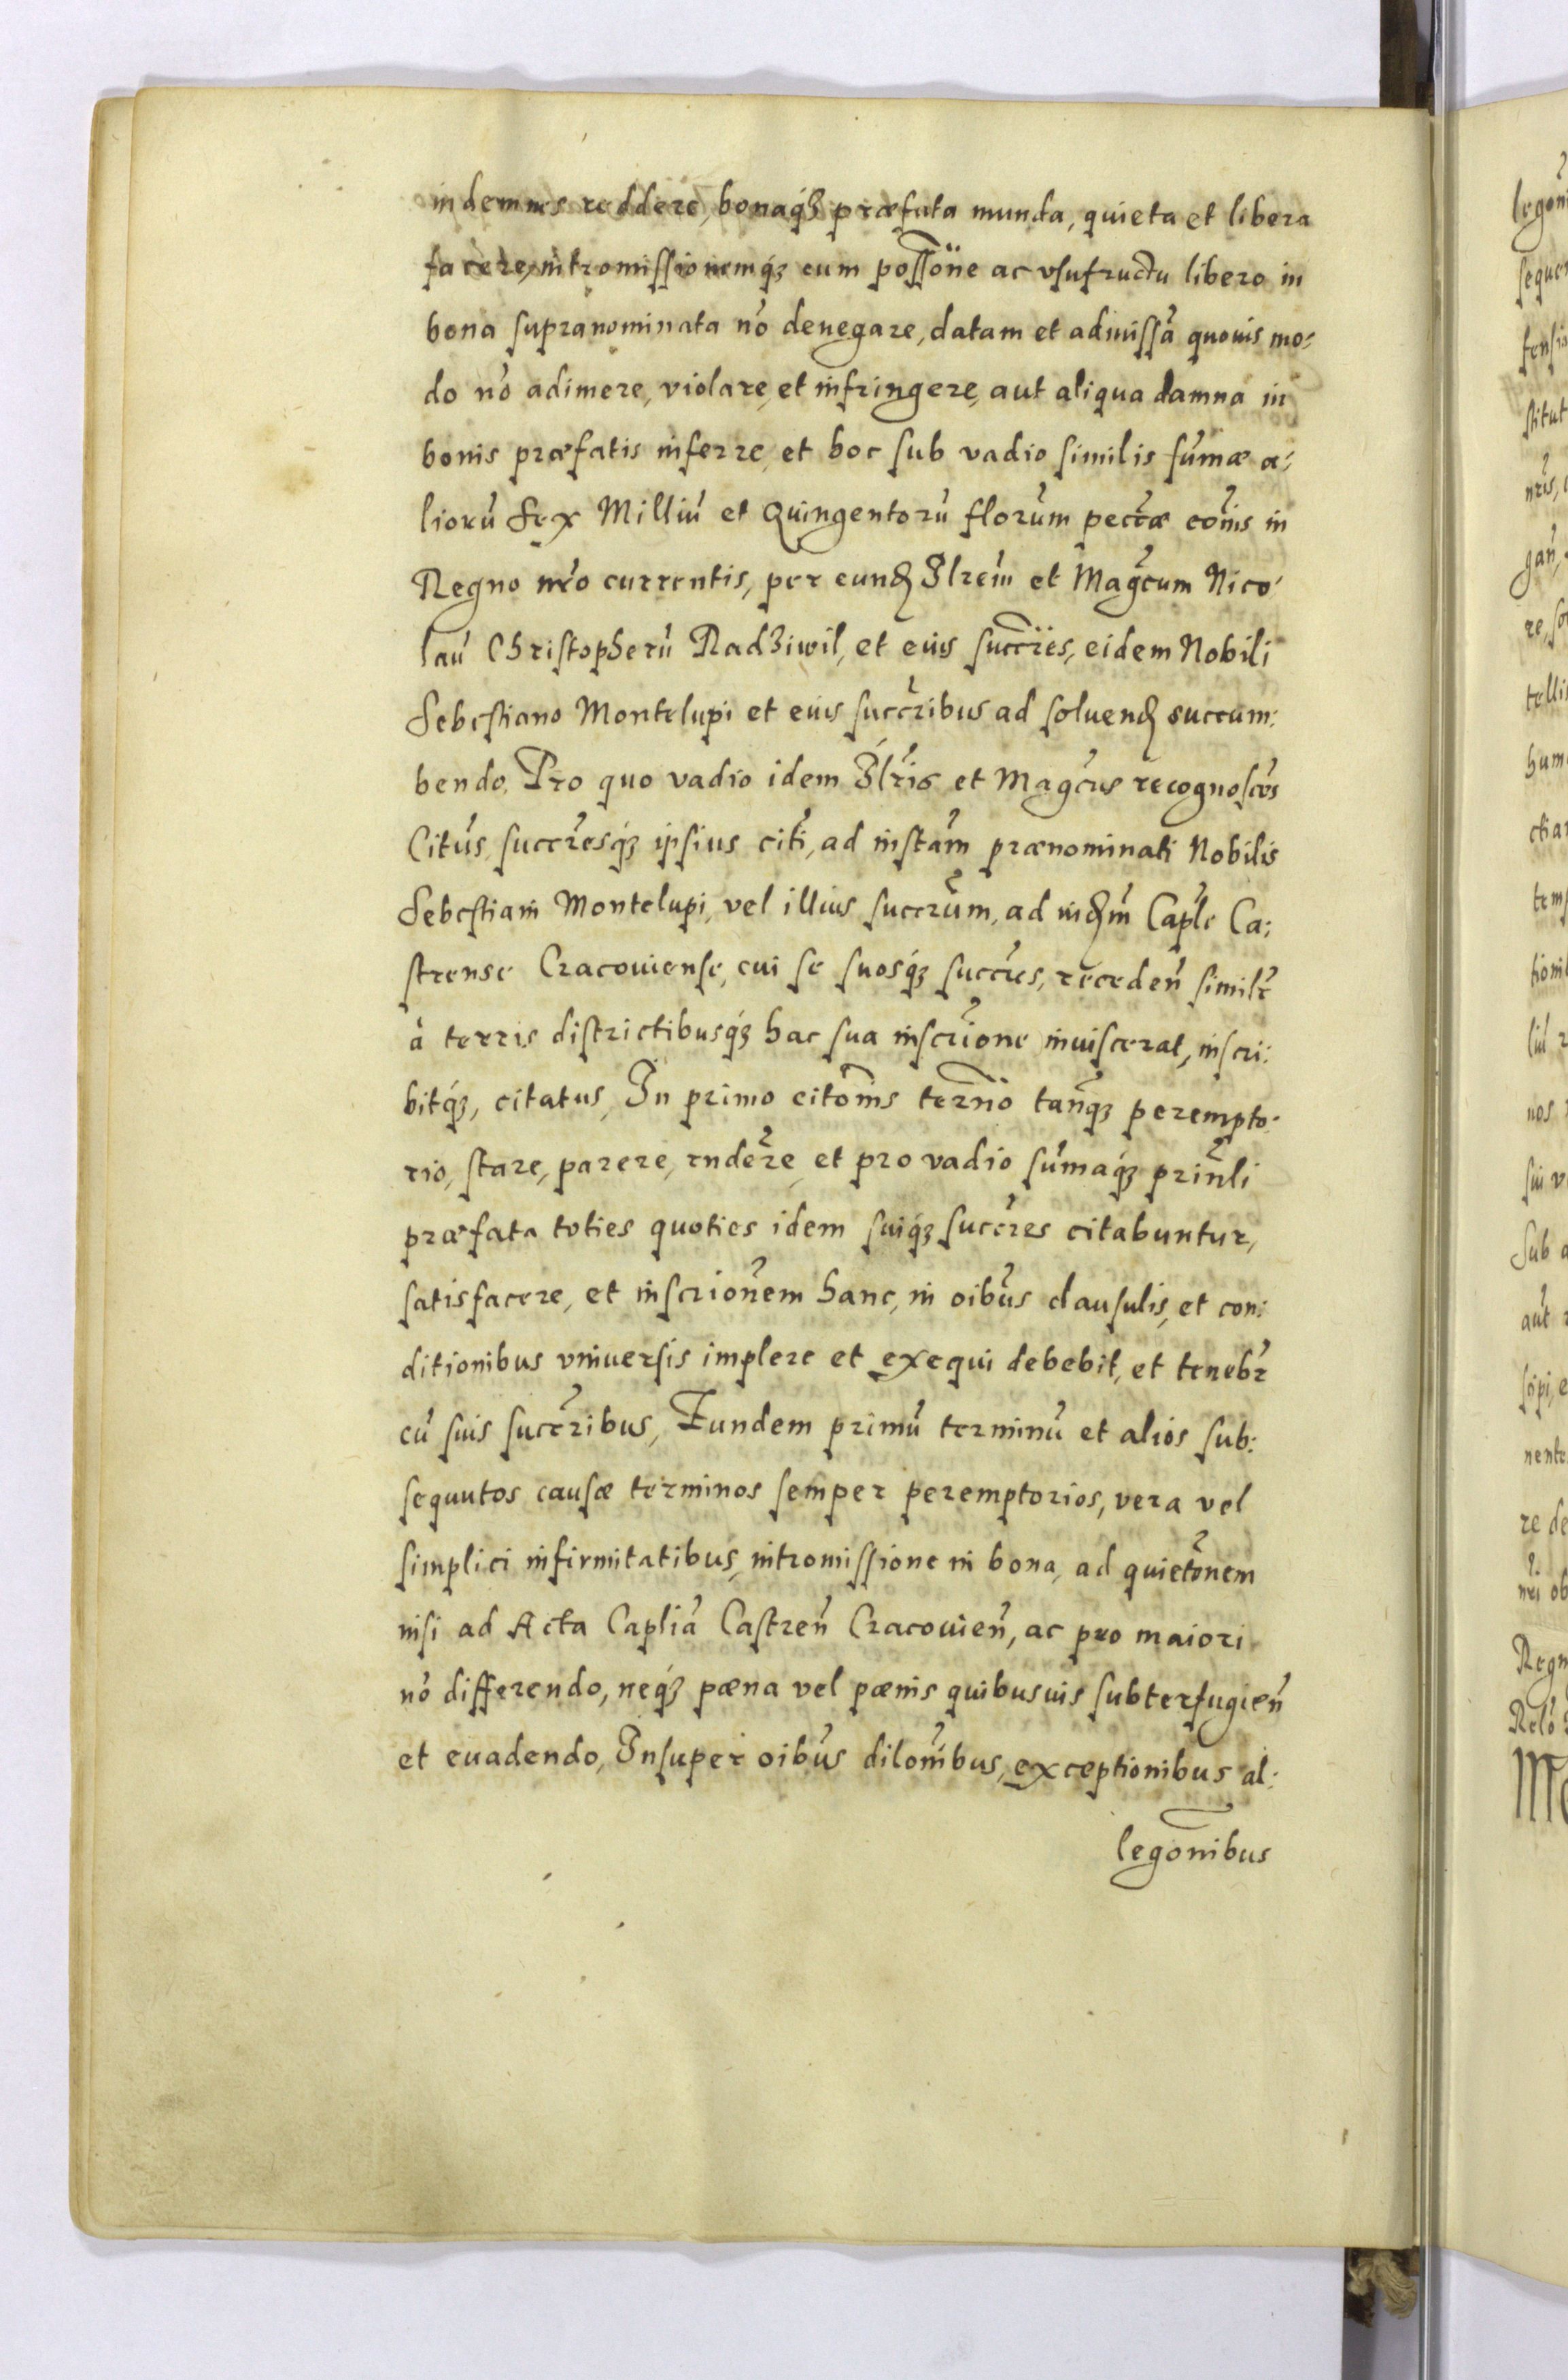 indemnes reddere, bonaq́ꝫ præfata munda, quieta et libera
facere, intromissionemq́ꝫ cum possone ac vsufructu libero in
bona supranominata nõ denegare, datam et admissã quouis mo:
do nõ adimere, violare, et infringere, aut aliqua damna in
bonis præfatis inferre, et hoc sub vadio similis sum̃æ a:
liorũ Sex Milliũ et Quingentorũ florum̃ pectæ com̃is in
Regno nr̃o currentis, per eund̃ Illrem̃ et Magcum̃ Nico:
laũ Christopherũ Radziwil, et eius succr̃es, eidem Nobili
Sebestiano Montelupi et eius succr̃ibus ad soluend̃ succum:
bendo. Pro quo vadio idem Illr̃is et Magcũs recognoscẽs
Citũs, succr̃esq́ꝫ ipsius citĩ, ad instãm prænominati Nobilis
Sebestiani Montelupi, vel illius succrũm, ad iud̃m Caplẽ Ca:
strense Cracouiense, cui se suosq́ꝫ succr̃es, recedeñ similr̃
à terris districtibusq́ꝫ hac sua inscriõne inuiscerat, inscri:
bitq́ꝫ, citatus, In primo citoñis terñio tanq̃ꝫ perempto:
rio, stare, parere, rnder̃e, et pro vadio sum̃aq́ꝫ prinl̃i
præfata toties quoties idem suiq́ꝫ succr̃es citabuntur,
satisfacere, et inscrioñem hanc, in oibũs clausulis, et con:
ditionibus vniuersis implere et exequi debebit, et tenebr̃
cũ suis succr̃ibus, Eundem primũ terminũ et alios sub:
sequutos causæ terminos semper peremptorios, vera vel
simplici infirmitatibus, intromissione in bona, ad quietoñem
nisi ad Acta Capliã Castreñ Cracouieñ, ac pro maiori
nõ differendo, neq́ꝫ pæna vel pænis quibusuis subterfugieñ
et euadendo, Insuper oibũs dilonĩbus, exceptionibus al:
legoñibus